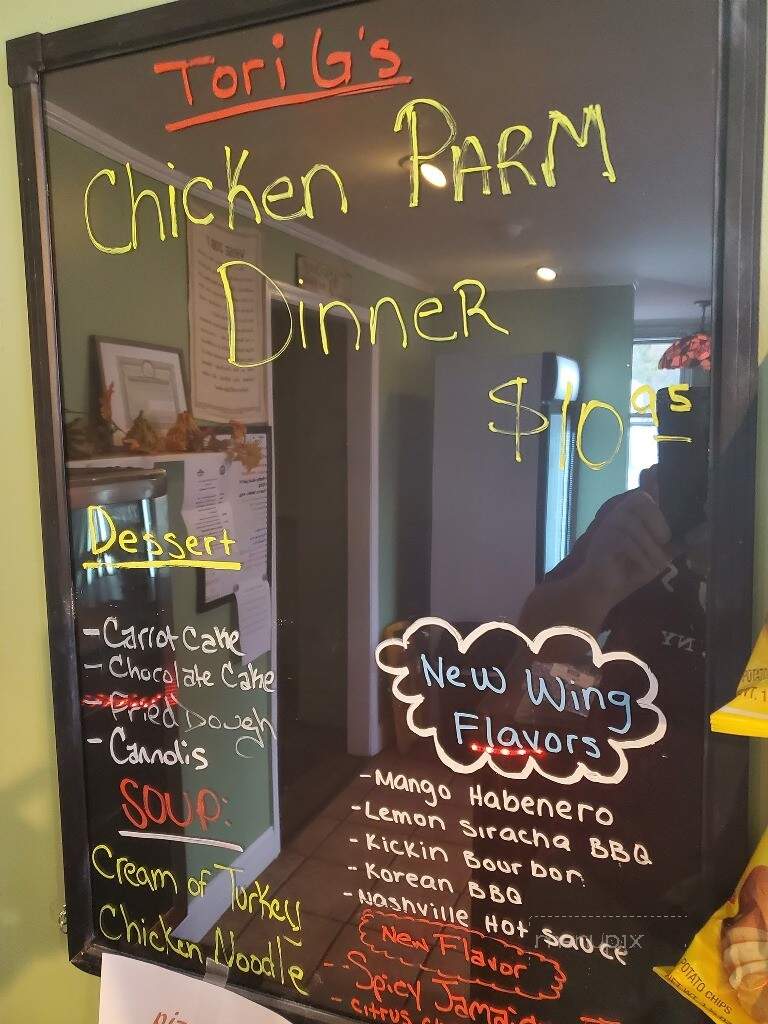 Tori G's
Chicken PARM
Dinner
$10.95
Dessert
- Carrot Cake
- Chocolate Cake
- Fried Dough
- Cannolis
SOUP:
Cream of Turkey
Chicken Noodle
New Wing
Flavors
- Mango Habenero
- Lemon Siracha BBQ
- Kickin Bourbon
- Korean BBQ
- Nashville Hot Sauce
New Flavor
- Spicy
- Citrus
menupix
POTATO CHIPS